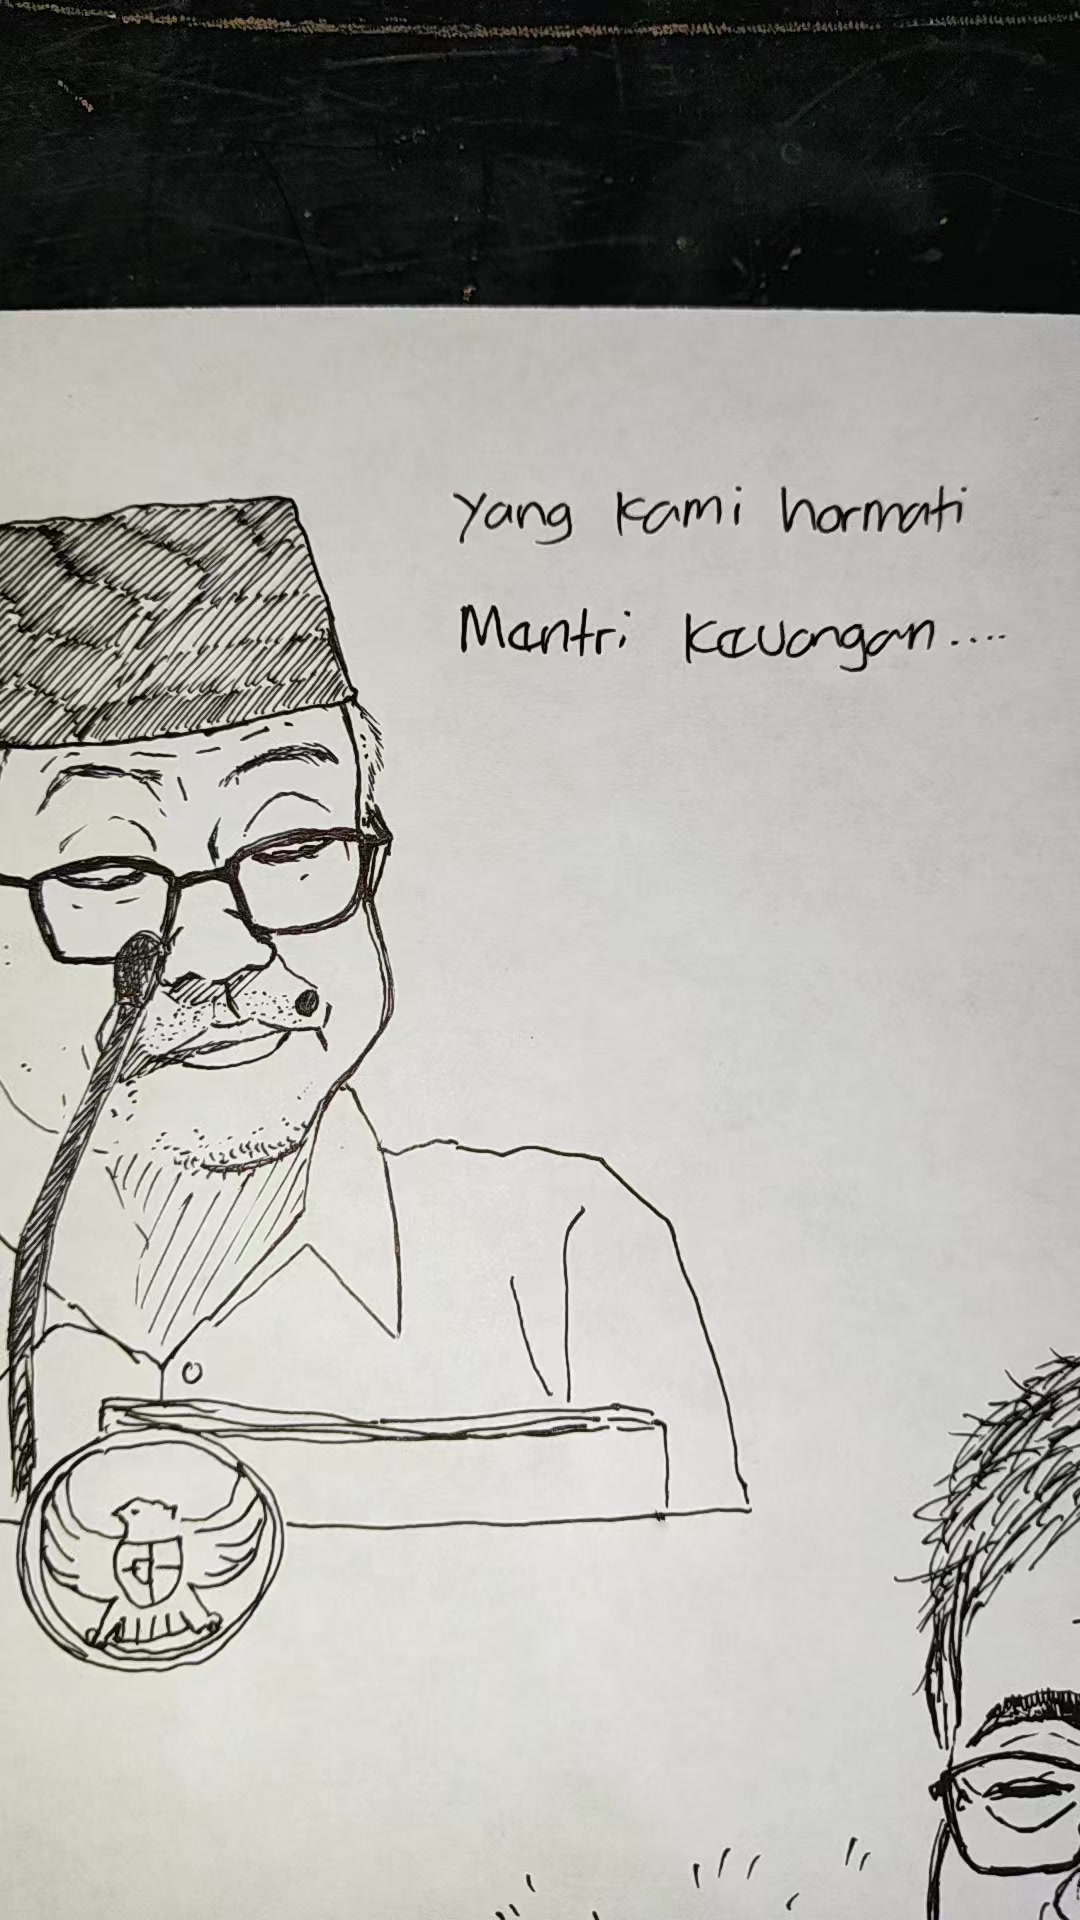 Yang kami hormati
Mentri Keuangan....